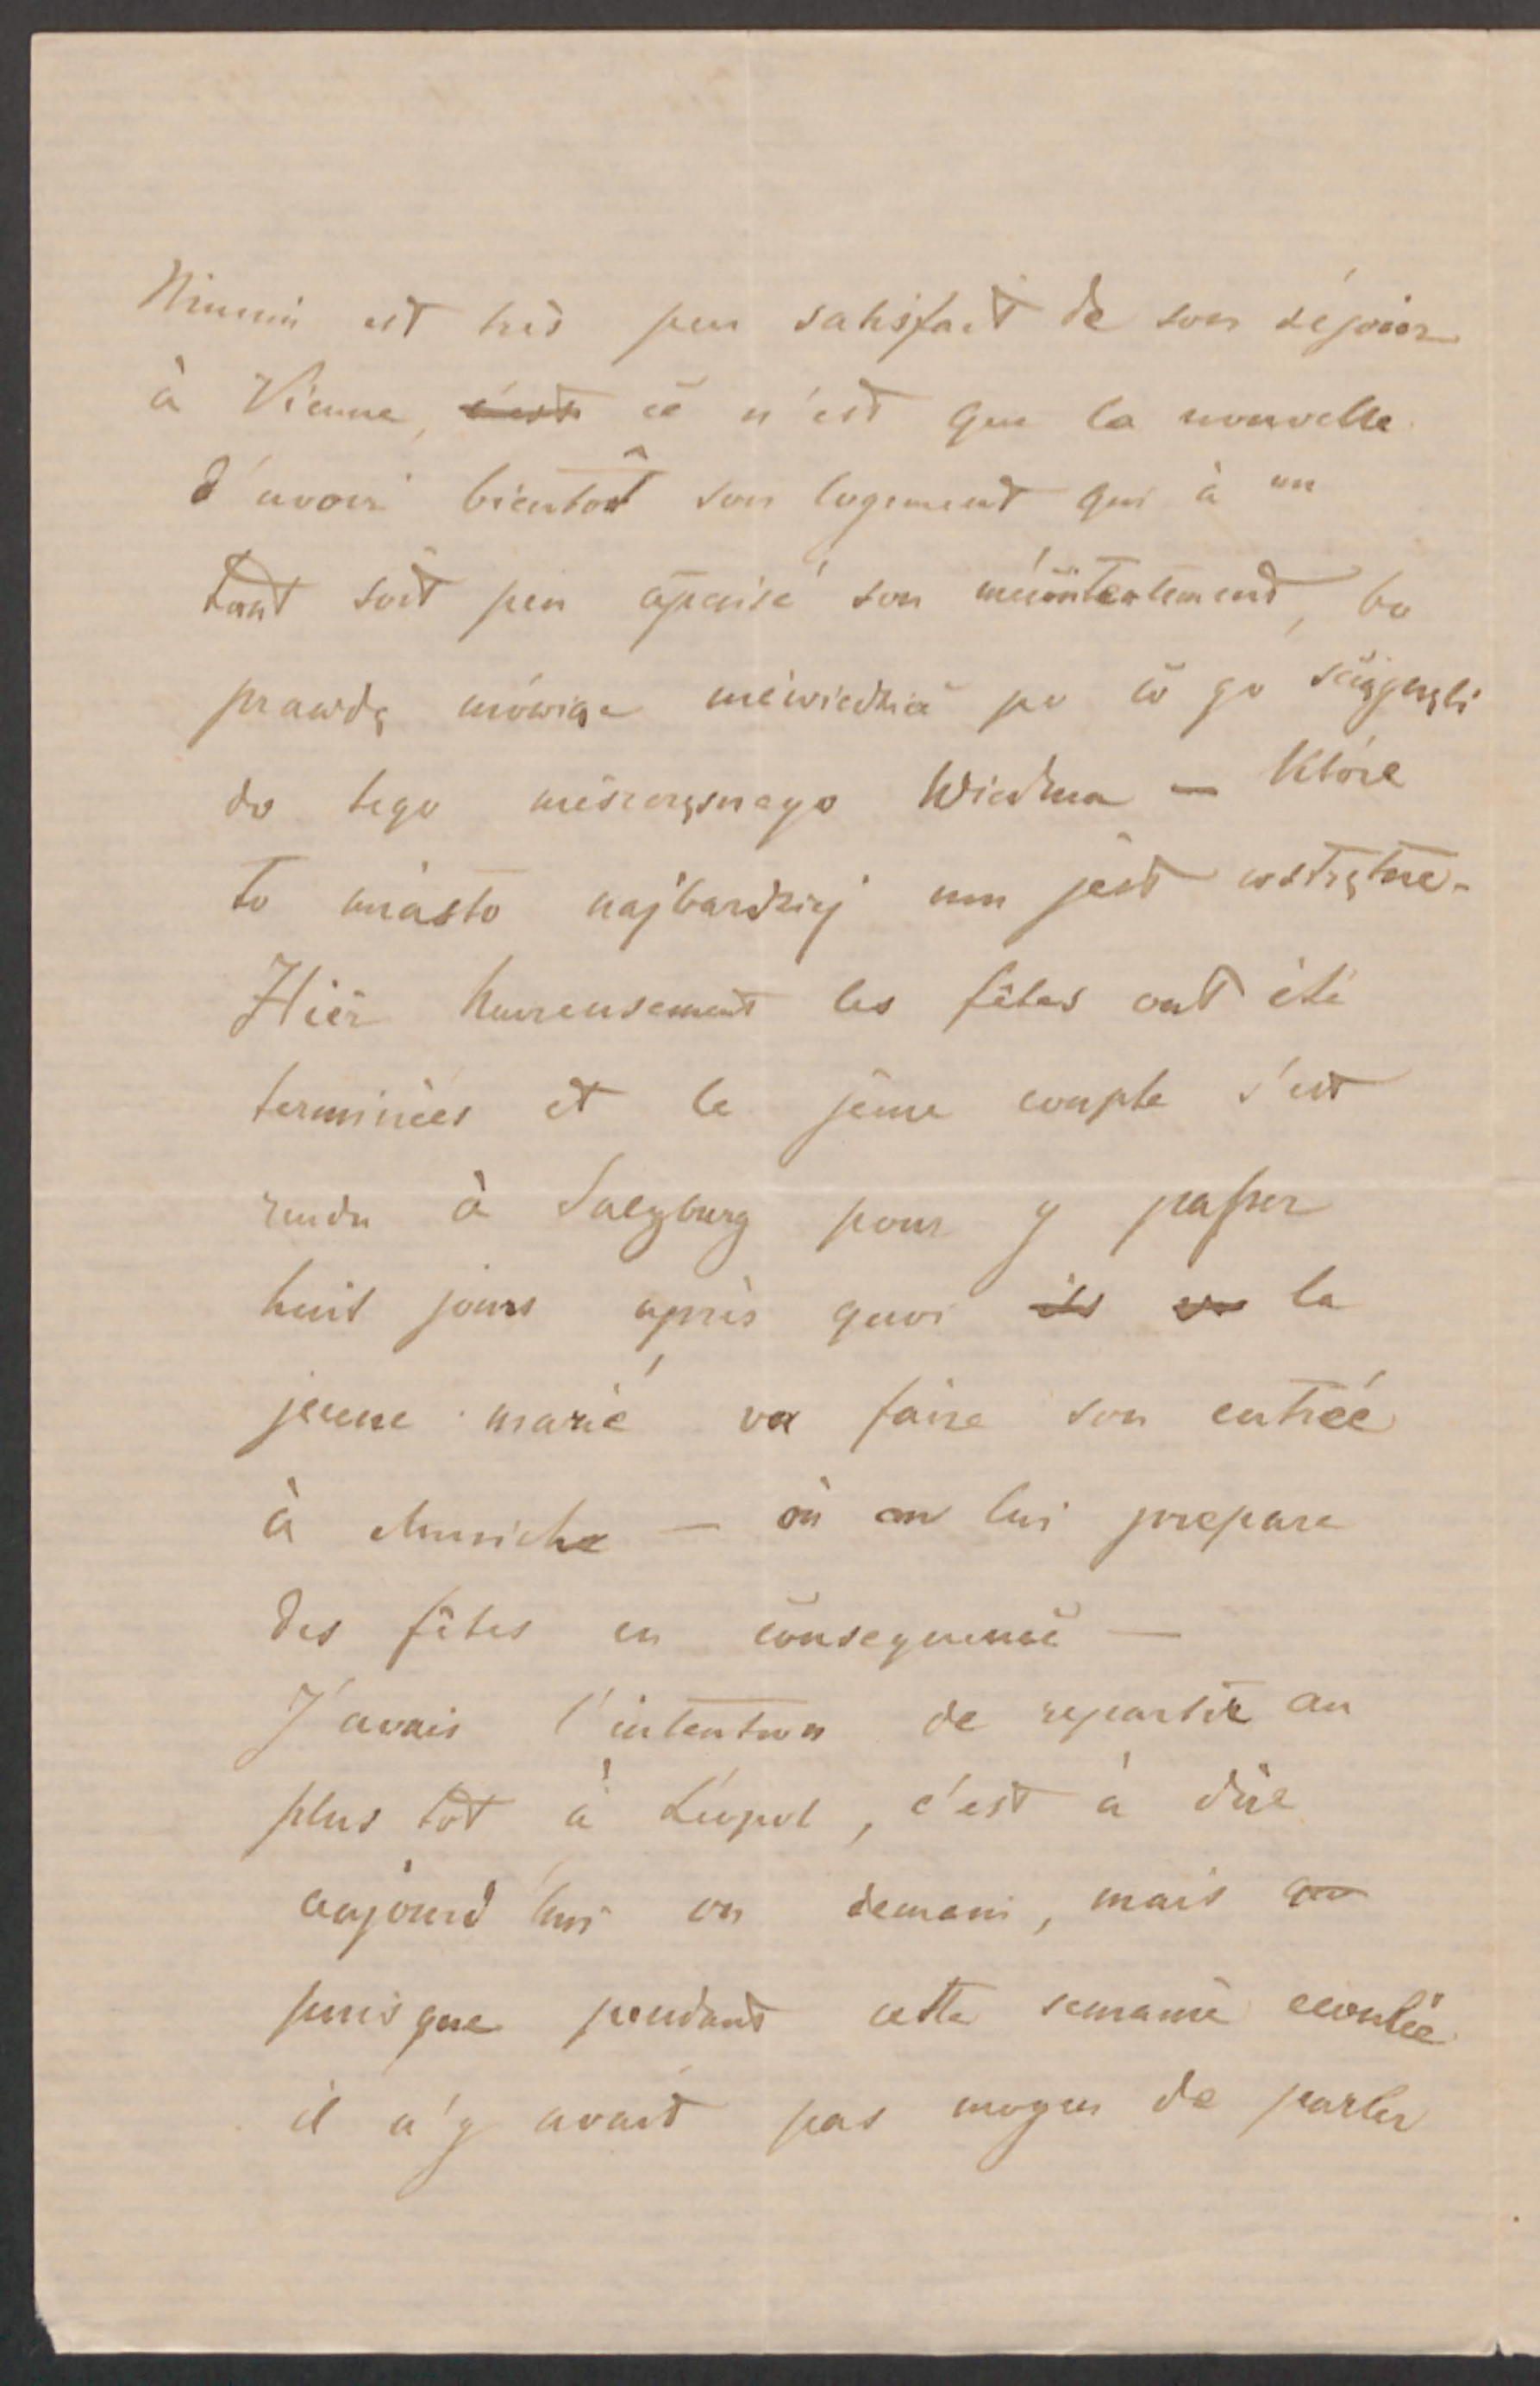 est très peu satisfait de son séjour
à Vienne, c'est ce n'est que la nouvelle
d'avoir bientôt son logement qui à un
tant soit peu apaisé son mécontentement, bo
prawdę mówiąc niewiedzieć po co go ściągnęli
do tego nieszczęsnego Wiednia — które
to miasto najbardziej mu jest wstrętne.
Hier heureusement les fêtes ont été
terminées et le jeune couple s'est
rendu à Salzburg pour y passer
huit jours après quoi ils la
jeune marié va faire son entrée
à Munich — où on lui prepare
des fêtes en consequence —
J'avais l'intention de repartir au
plus tôt à Léopol, c'est à dire
aujourd'hui ou demain, mais
puisque pendant cette semaine ecoulée
il n'y avait pas moyen de parler